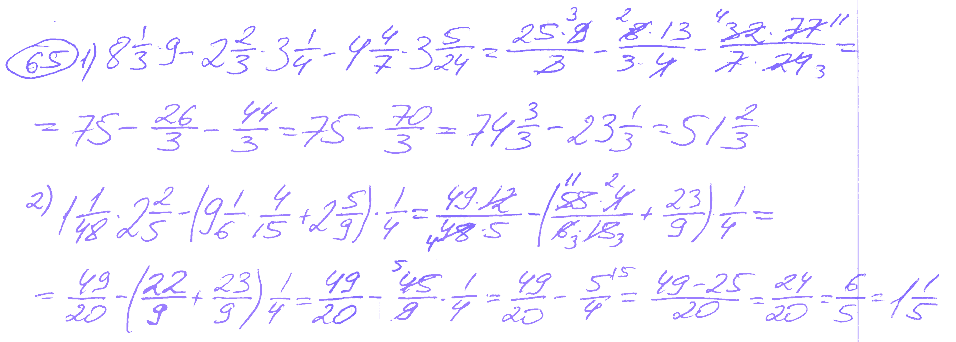 65 1) 8 1/3 · 9 - 2 2/3 · 3 1/4 - 4 4/7 · 3 5/24 = (25 · 9 3)/3 - (2 8 · 13)/(3 · 4) - (4 32 · 77 11)/(7 · 24 3) =
= 75 - 26/3 - 44/3 = 75 - 70/3 = 74 3/3 - 23 1/3 = 51 2/3
2) 1 1/48 · 2 2/5 - (9 1/6 · 4/15 + 2 5/9) · 1/4 = (49 · 12)/(4 48 · 5) - ((11 55 · 2 4)/(6 3 · 15 3) + 23/9) 1/4 =
= 49/20 - (22/9 + 23/9) 1/4 = 49/20 - 5 45/9 · 1/4 = 49/20 - 5/4 15 = (49 - 25)/20 = 24/20 = 6/5 = 1 1/5